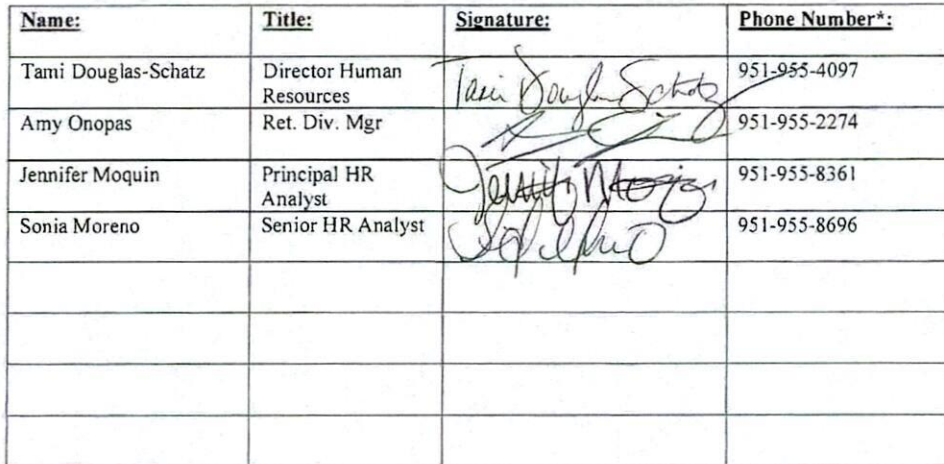 Name: Title: Signature: Phone Number*:
Tami Douglas-Schatz Director Human Resources Tami Douglas-Schatz 951-955-4097
Amy Onopas Ret. Div. Mgr 951-955-2274
Jennifer Moquin Principal HR Analyst Jennifer Moquin 951-955-8361
Sonia Moreno Senior HR Analyst 951-955-8696